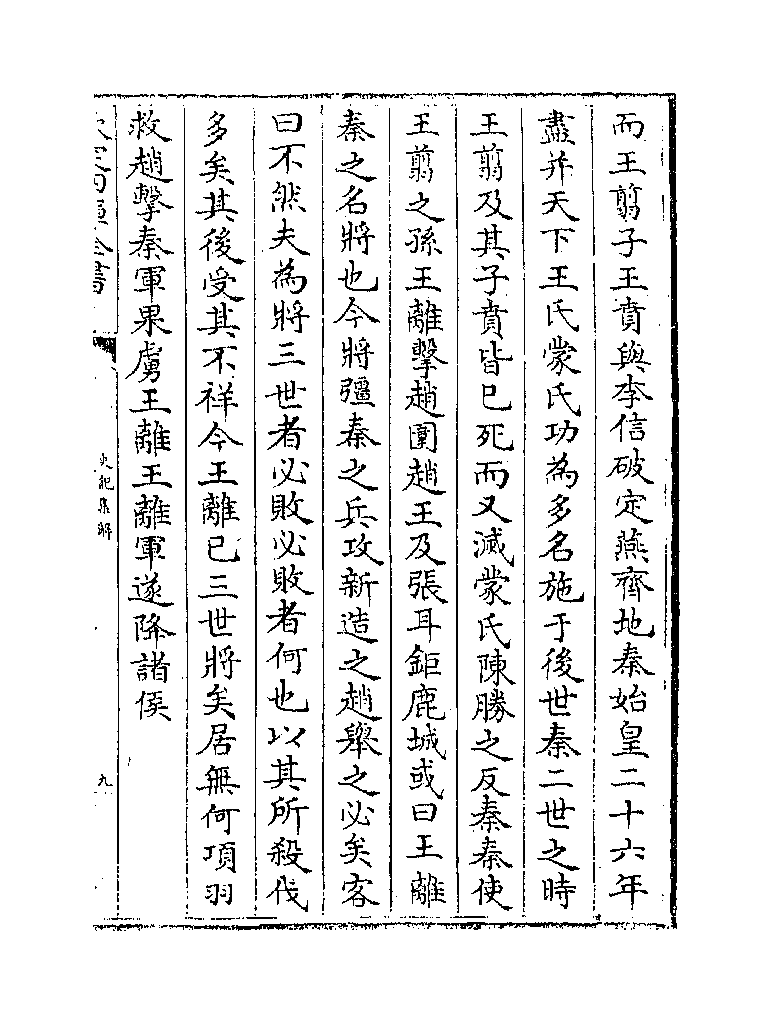 而王翦子王賁與李信破定燕齊地秦始皇二十六年
盡并天下王氏蒙氏功為多名施于後世秦二世之時
王翦及其子賁皆已死而又滅蒙氏陳勝之反秦秦使
王翦之孫王離擊趙圍趙王及張耳鉅鹿城或曰王離
秦之名將也今將彊秦之兵攻新造之趙舉之必矣客
曰不然夫為將三世者必敗必敗者何也以其所殺伐
多矣其後受其不祥今王離已三世將矣居無何項羽
救趙擊秦軍果虜王離王離軍遂降諸侯
欽定四庫全書
史記集解
九